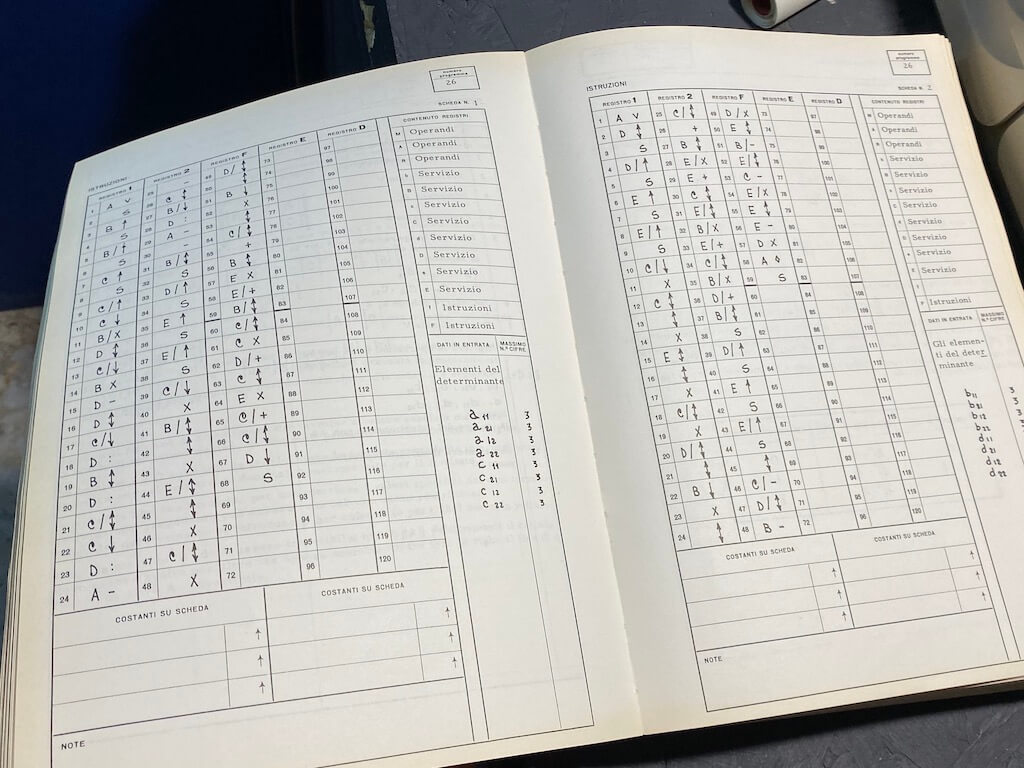 numero
programma
26
SCHEDA N. 1
ISTRUZIONI
REGISTRO 1 REGISTRO 2 REGISTRO F REGISTRO E REGISTRO D
1 A V 25 49 D/↕ 73 97
2 S 26 C ↕ 50 ↕ 74 98
3 B ↑ 27 B/↓ 51 B ↕ 75 99
4 S 28 D - 52 X 76 100
5 B/↑ 29 A - 53 ↕ 77 101
6 S 30 - 54 C/↕ 78 102
7 C ↑ 31 B/↕ 55 + 79 103
8 S 32 S 56 B ↕ 80 104
9 C/↑ 33 D/↑ 57 E X 81 105
10 C ↓ 34 S 58 E/+ 82 106
11 B/X 35 E ↑ 59 B/↕ 83 107
12 D ↕ 36 S 60 C/↕ 84 108
13 C/↓ 37 E/↑ 61 C X 85 109
14 B X 38 S 62 D/+ 86 110
15 D - 39 C/↓ 63 C ↕ 87 111
16 D ↕ 40 X 64 E X 88 112
17 C/↓ 41 B/↕ 65 C/+ 89 113
18 D : 42 ↕ 66 C/↕ 90 114
19 B ↕ 43 X 67 D ↓ 91 115
20 D : 44 E/↕ 68 S 92 116
21 C/↕ 45 ↕ 69 93 117
22 C ↓ 46 X 70 94 118
23 D : 47 C/↕ 71 95 119
24 A - 48 X 72 96 120
COSTANTI SU SCHEDA COSTANTI SU SCHEDA
↑ ↑
↑ ↑
↑ ↑
NOTE
CONTENUTO REGISTRI
M Operandi
A Operandi
R Operandi
b Servizio
B Servizio
c Servizio
C Servizio
d Servizio
D Servizio
e Servizio
E Servizio
1 Istruzioni
F Istruzioni
DATI IN ENTRATA MASSIMO N.° CIFRE
Elementi del
determinante
a 11 3
a 21 3
a 12 3
a 22 3
c 11 3
c 21 3
c 12 3
c 22 3
numero
programma
26
SCHEDA N. 2
ISTRUZIONI
REGISTRO 1 REGISTRO 2 REGISTRO F REGISTRO E REGISTRO D
1 A V 25 C/↕ 49 D/X 73 97
2 D ↕ 26 + 50 E ↕ 74 98
3 S 27 B ↕ 51 B/- 75 99
4 D/↑ 28 E/X 52 E/↕ 76 100
5 S 29 E + 53 C - 77 101
6 E ↑ 30 C ↕ 54 E/X 78 102
7 S 31 E/↕ 55 E ↕ 79 103
8 E/↑ 32 B/X 56 E - 80 104
9 S 33 E/+ 57 D X 81 105
10 C/↓ 34 C/↕ 58 A ◊ 82 106
11 X 35 B/X 59 S 83 107
12 C ↕ 36 D/+ 60 84 108
13 ↕ 37 B/↕ 61 85 109
14 X 38 S 62 86 110
15 E ↕ 39 D/↑ 63 87 111
16 ↕ 40 S 64 88 112
17 X 41 E ↑ 65 89 113
18 C/↕ 42 S 66 90 114
19 X 43 E/↑ 67 91 115
20 D/↕ 44 S 68 92 116
21 ↕ 45 ↕ 69 93 117
22 B ↓ 46 C/- 70 94 118
23 X 47 D/↕ 71 95 119
24 ↕ 48 B - 72 96 120
COSTANTI SU SCHEDA COSTANTI SU SCHEDA
↑ ↑
↑ ↑
↑ ↑
NOTE
CONTENUTO REGISTRI
M Operandi
A Operandi
R Operandi
b Servizio
B Servizio
c Servizio
C Servizio
d Servizio
D Servizio
e Servizio
E Servizio
1
F Istruzioni
DATI IN ENTRATA MASSIMO N.° CIFRE
Gli elemen-
ti del deter
minante
b11 3
b21 3
b12 3
b22 3
d11 3
d21 3
d12 3
d22 3